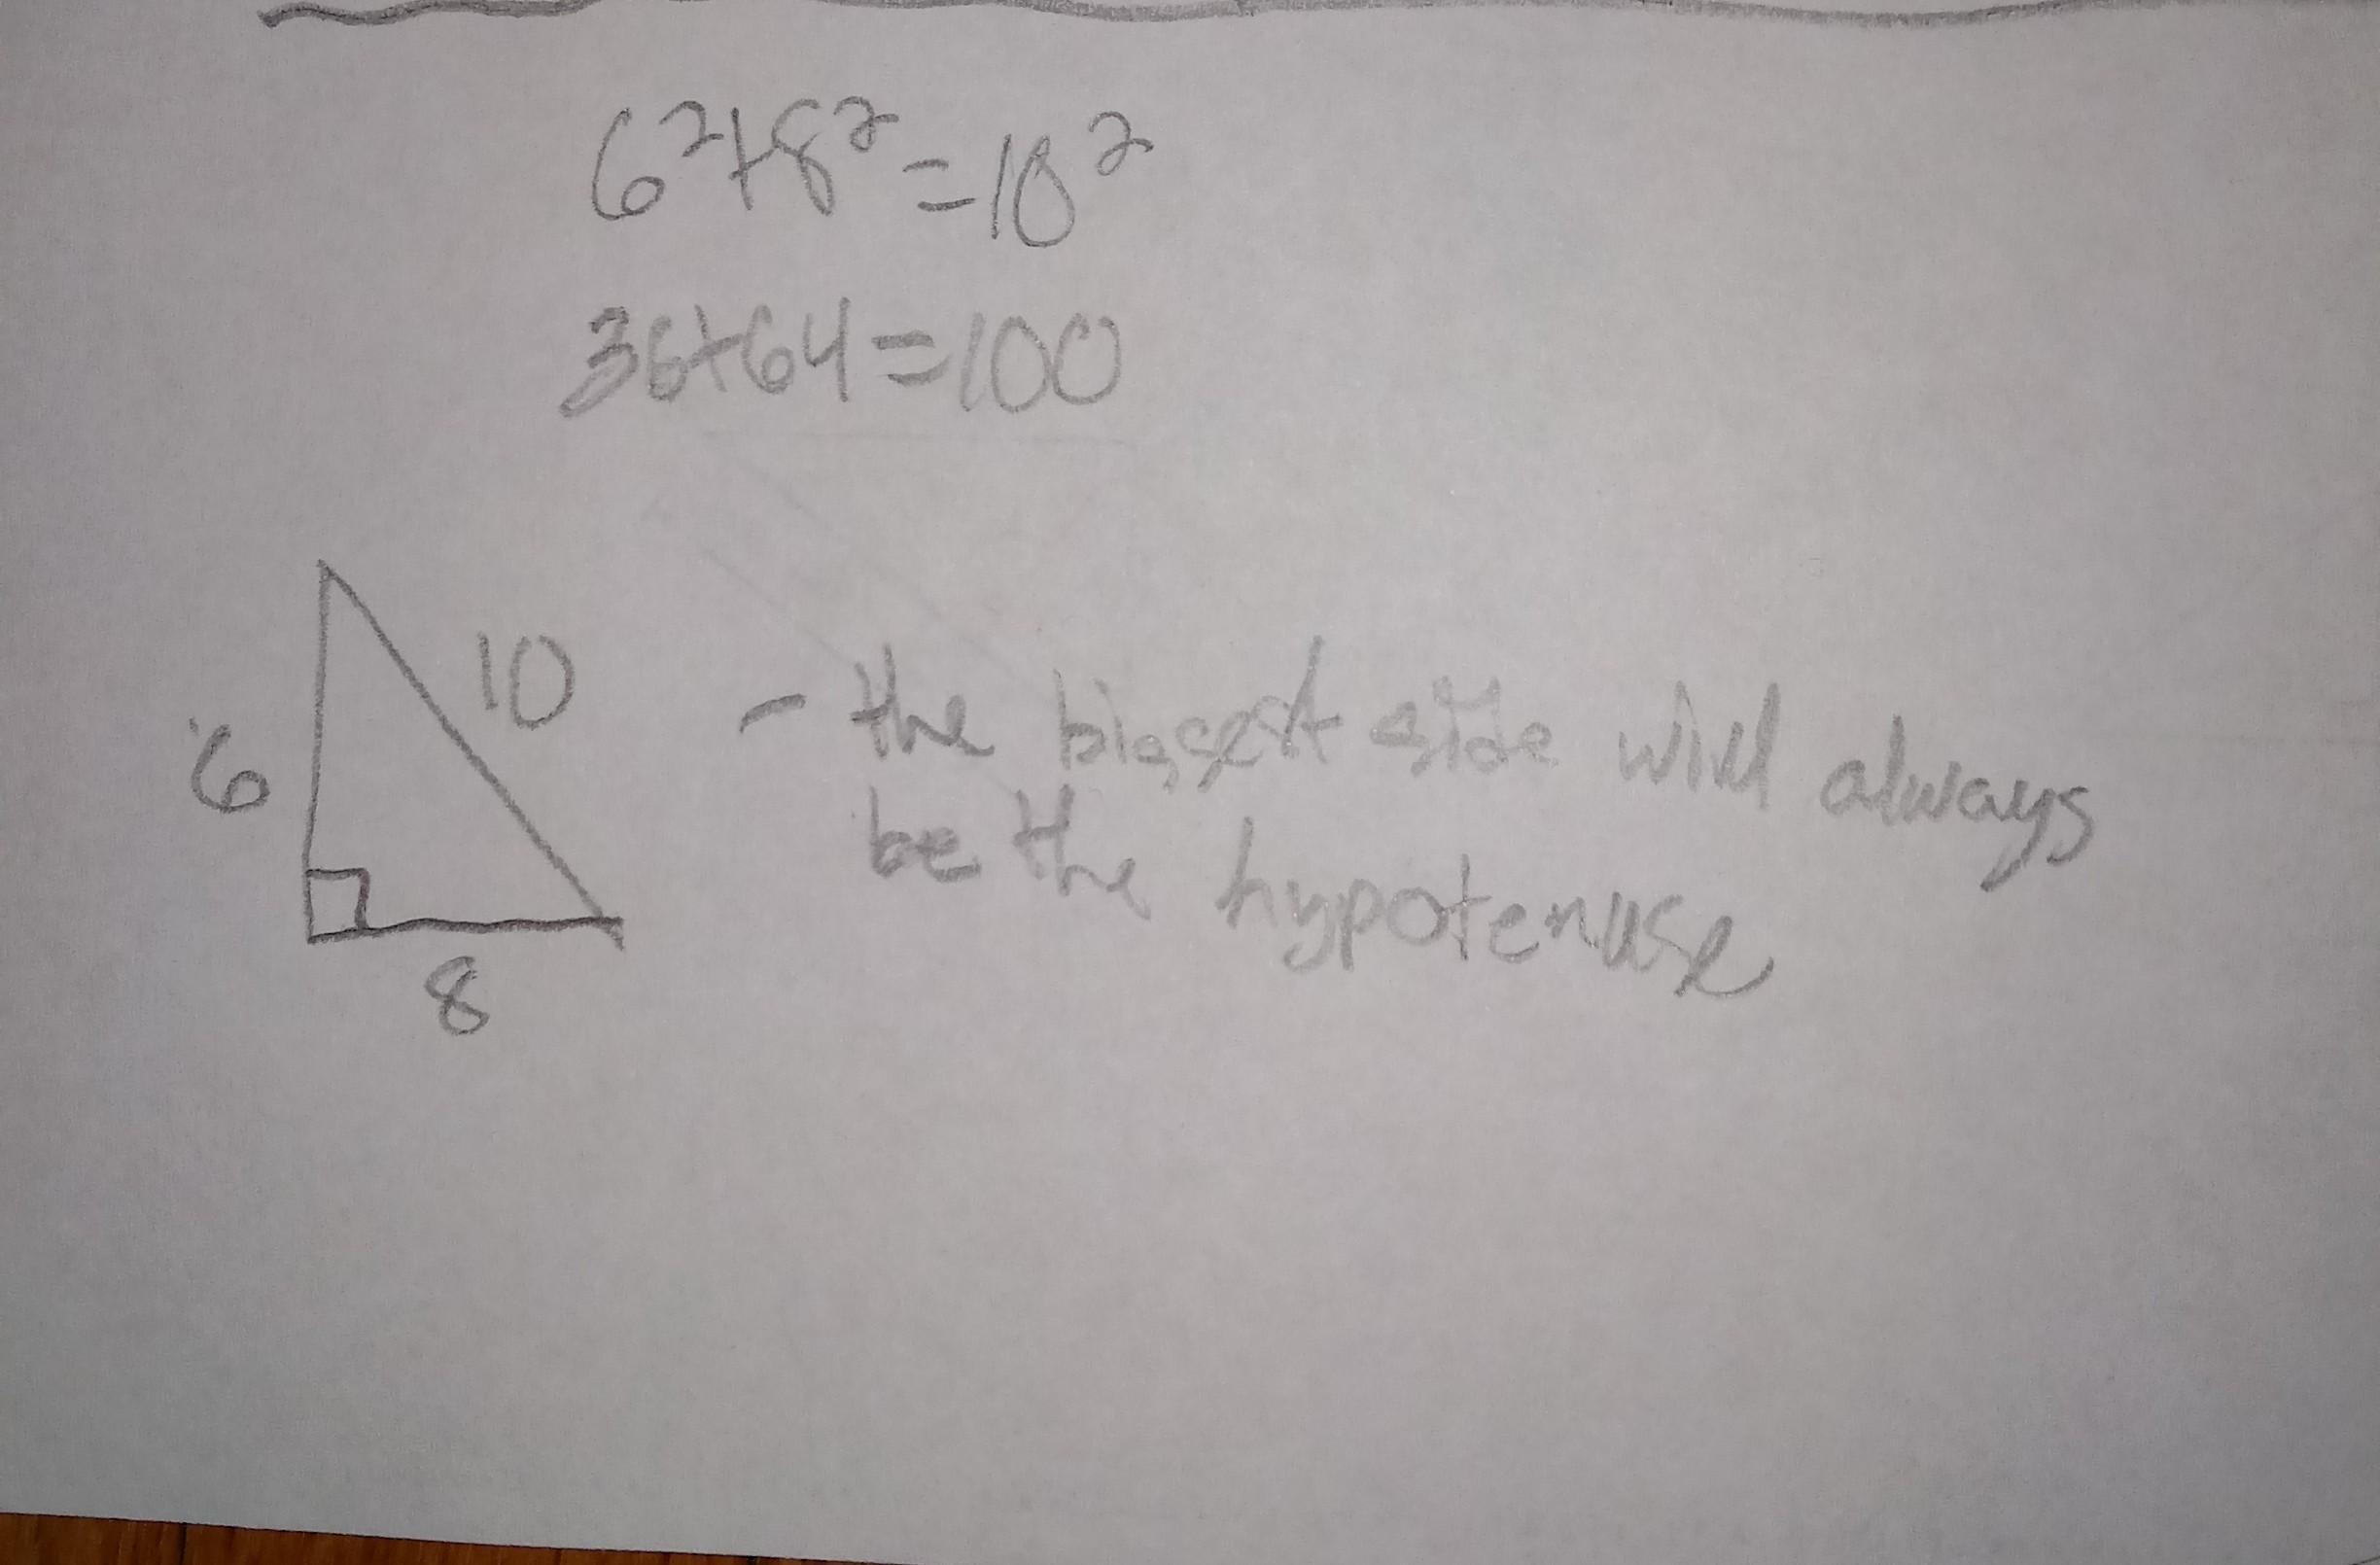 6²+8²=10²
36+64=100
6
10
8
- the biggest side will always
be the hypotenuse